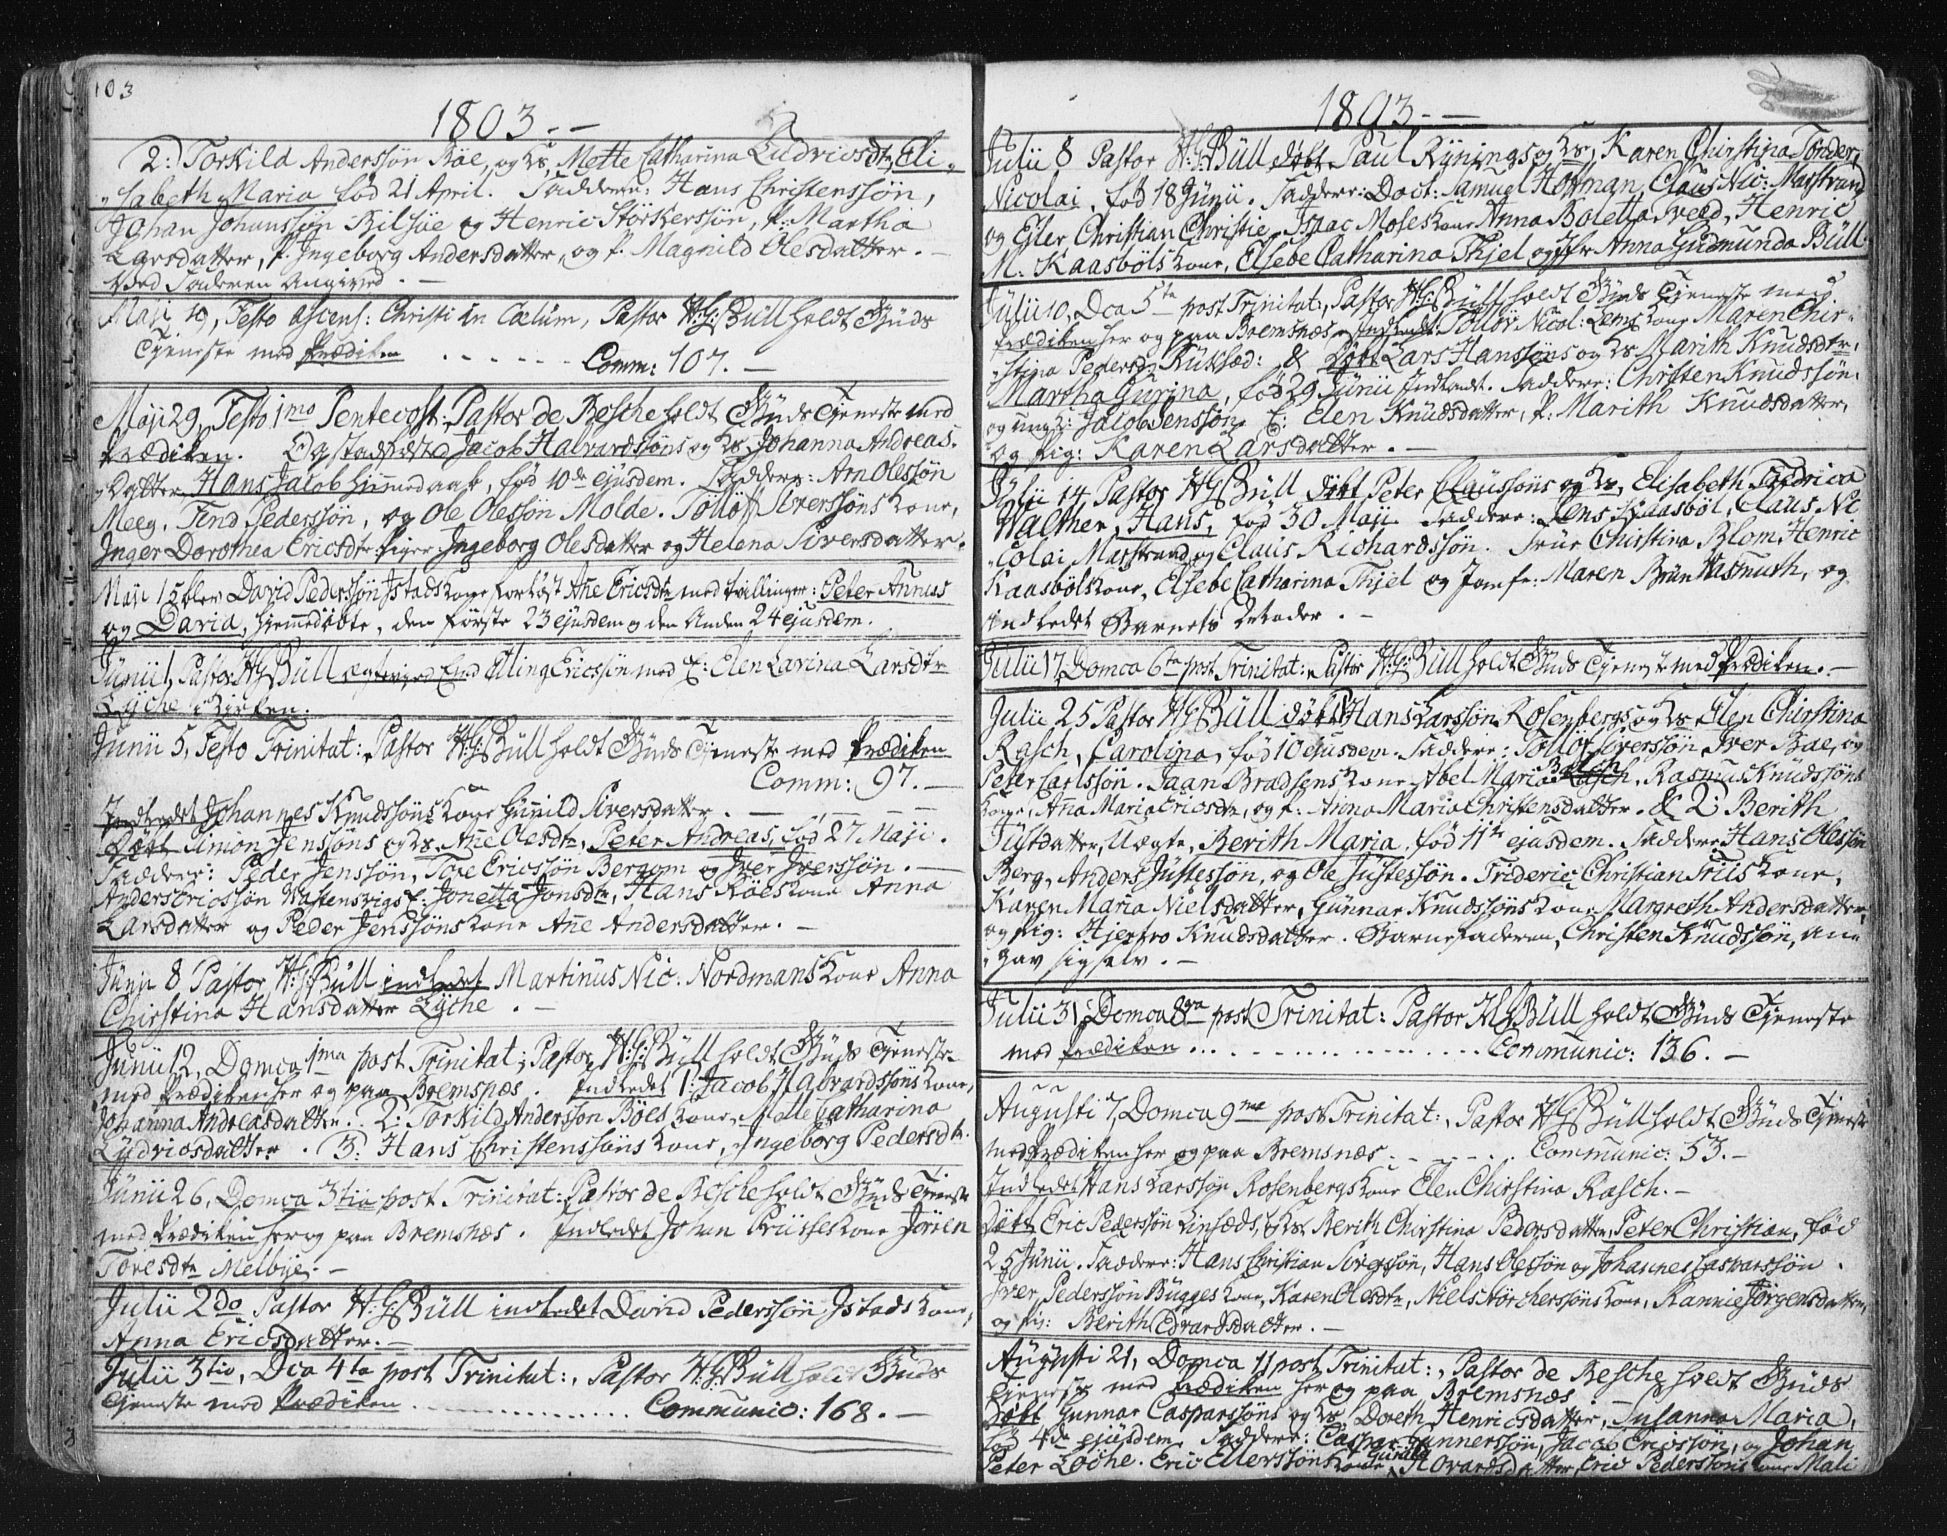 103
1803.--
2: Torkild Anderssøn Böe, og Hs. Mette Catharina Ludvicsdtr, Eli-
sabeth Maria fød 21 April. Faddere: Hans Christenssøn,
Johan Johanssøn og Henric Störkerssøn, P: Martha
Larsdatter, P. Ingeborg Andersdatter, og P. Magnild Olesdatter. -
Ved Faderen Angived. -
Maji 19, Festo ascens: Christi in Cælum, Pastor H:G: Büll holdt Guds
Tjeneste med Prædiken - - - - - - - Comm: 107. -
Maji 29, Festo 1mo Pentecost: Pastor de Besche holdt Guds Tjeneste med
Prædiken. Og stadfæstede Jacob Halvardssøns og Hs. Johanna Andreas-
Datter, Hans Jacob hiemmedaab, fød 10de ejusdem. Faddere: Arn Olessøn
Meeg, Find Pederssøn, og Ole Olessøn Molde. Tölløf Iverssøns Kone,
Inger Dorothea Ericsdtr Piger Ingeborg Olesdatter og Helena Siversdatter.
Maji 15 blev David Pederssøn Istads Kone forløst Ane Ericsdtr med tvillinger: Peter Annæus
og David, hjemmedöbte, den første 23 ejusdem og den Anden 24 ejusdem.
Junii 1, Pastor HG Büll ægteviede Elling Ericssøn med P: Elen Larina Larsdtr
Lyche i Kirken.
Junii 5, Festo Trinitat: Pastor H:G: Büll holdt Guds Tjeneste med Prædiken
Comm: 97. -
Indledet Johannes Knudssøns Kone Gunnild Siversdatter. - - - -
Døbt Simon Jenssøns og Hs. Ane Olesdtr, Peter Andreas, fød 27 Maji.
Faddere: Peder Jenssøn, Tore Ericssøn Bergom og Iver Iverssøn. -
Anders Ericssøn Wattensvigs P: Jonetta Jonsdtr, Hans Röes Kone Anna
Larsdatter og Peder Jenssøns Kone Ane Andersdatter. -
Junii 8 Pastor H:G: Büll indledet Martinus Nic: Nordmans Kone Anna
Christina Hansdatter Lyche. -
Junii 12, Domca 1ma post Trinitat: Pastor H:G: Büll holdt Guds Tjeneste
med Prædiken her og paa Bremsnæs. Indledet 1: Jacob Halvardssøns Kone,
Johanna Andreasdatter. 2: Torkild Anderssøn Böes Kone, Mette Catharina
Ludvicsdatter. 3: Hans Christenssøns Kone, Ingeborg Pedersdtr.
Junii 26, Domca 3tia post Trinitat: Pastor de Besche holdt Guds Tjeneste
med Prædiken her og paa Bremsnæs. Indledet Johan Prüsses Kone Jören
Toresdtr Melbye. -
Julii 2do Pastor H:G: Büll indledet David Pederssøn Istads Kone,
Anna Ericsdatter. -
Julii 3tio, Dca 4ta post Trinitat:, Pastor H:G: Büll holdt Guds
Tjeneste med Prædiken . . . . . . . . . . . . Communic: 168. -
1803.--
Julii 8 Pastor H:G: Büll døbt Paul Rynings og Hs. Karen Christina Tønder,
Nicolai, fød 18 Junii. Faddere: Doct: Samuel Hofman, Claus Nic: Mastrand
og Ejler Christian Christie, Isaac Moses Kone Anna Boletta Sveed, Henric
M. Kaasböls Kone, Elsebe Catharina Thjel og Jfr Anna Gudmunda Büll.
Julii 10, Dca 5ta post Trinitat:, Pastor H:G: Büll holdt Guds Tjeneste med
Prædiken her og paa Bremsnæs. Indledt: Tolløv Nicol: Lems Kone Maren Chir-
stina Pedersd & Døbt Lars Hanssøns og Hs. Marith Knudsdtr,
Martha Gurina, fød 29 Junii Indladt. Faddere: Christen Knudssøn
og ungk: Jacob Jenssøn, E: Elen Knudsdatter, P. Marith Knudsdatter,
og Pig: Karen Larsdatter. -
Julii 14 Pastor HG Büll døbt Peter Claussøns og Hs. Elisabeth Fadrica
Walther, Hans, fød 30 Maji. Faddere: Jens Kaasböl, Claus Ni-
colai Mastrand og Claus Richardssøn. Frue Christina Blom, Henric
Kaasböls Kone, Elsebe Catharina Thjel og Jomfr: Maren Brun Wasmuth, og
Indledet Barnets Moder. -
Julii 17, Domca 6ta post Trinitat: Pastor H:G: Büll holdt Guds Tjeneste med Prædiken. -
Julii 25 Pastor HG Büll døbt 1: Hans Larssøn Rosenbergs og Hs. Elen Christina
Rasch, Carolina, fød 10 ejusdem. Faddere: Tølløf Siverssøn, Iver Bae, og
Peter Carlssøn. Jaan Bradsens Kone Abel Maria Balch, Rasmus Knudssøns
Kone, Ana Maria Ericsdtr, og P. Anna Maria Christensdatter. & 2: Berith
Justdatter, Uægte, Berith Maria, fød 11te ejusdem. Faddere Hans Olessøn
Berg, Anders Justessøn, og Ole Justessøn. Frideric Christian Friis Kone,
Karen Maria Nielsdatter, Gunnar Knudssøns Kone Margreth Andersdatter,
og Pig: Hjertro Knudsdatter. Barnefaderen, Christen Knudssøn, an-
gav sig selv. -
Julii 31, Domca 8va post Trinitat: Pastor HG Büll holdt Guds Tjeneste
med Prædiken . . . . . . . . . . . . . . . Communic: 136. -
Augusti 7, Domca 9na post Trinitat:, Pastor HG Büll holdt Guds Tjeneste
med Prædiken her og paa Bremsnæs - - - - - - . . Communic: 53. -
Indledet Hans Larssøn Rosenbergs Kone Elen Christina Rasch. -
Døbt Eric Pederssøn Linsæds, og Hs. Berith Christina Pedersdatter, Peter Christian, fød
25 Junii. Faddere: Hans Christian Sivertssøn, Hans Olessøn og Johannes Casparssøn.
Iver Pederssøn Bügges Kone, Karen Olesdtr, Niels Störcherssøns Kone, Rannie Jörgensdatter,
og Pig: Berith Edvardsdatter. -
Augusti 21, Domca 11 post Trinitat:, Pastor de Besche holdt Guds
Tjeneste med Prædiken her og paa Bremsnæs -
Døbt Gunnar Casparssøns og Hs. Doreth Henricsdatter, Susanna Maria,
fød 4de ejusdem. Faddere: Caspar Gunnerssøn, Jacob Ericssøn, og Johan
Peter Loche. Eric Ellerssøns Kone Gunild Hovardsdatter, Eric Pederssøns Kone Mali